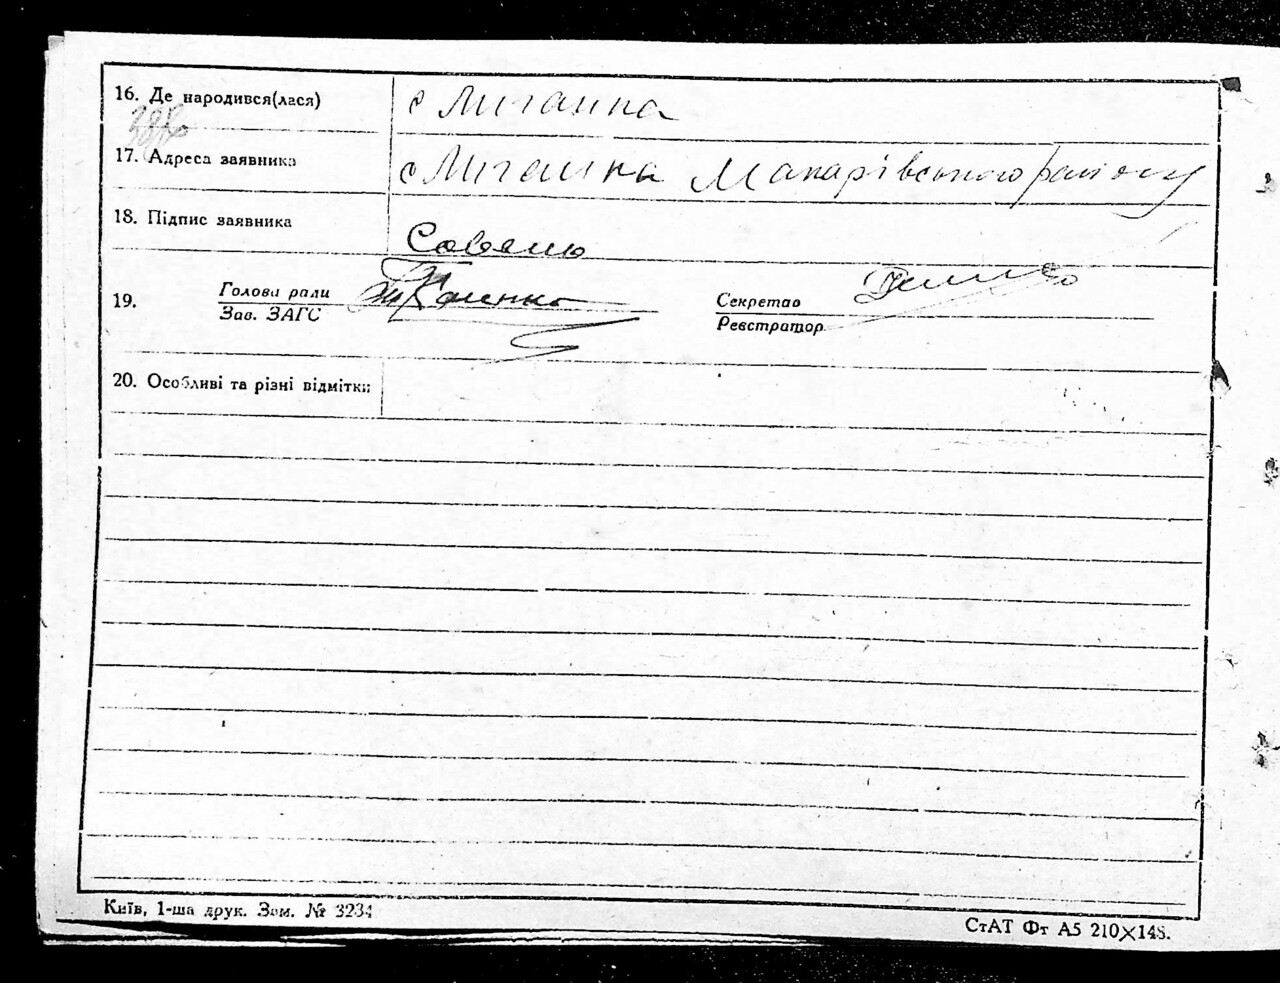 16. Де народився(лася) с Мигалка
17. Адреса заявника с Мигалка Макарівського району
18. Підпис заявника
19. Голова ради Секретар
Зав. ЗАГС Реєстратор
20. Особливі та різні відмітки
Київ, 1-ша друк. Зам. № 3234
СтАТ Фт А5 210×148.